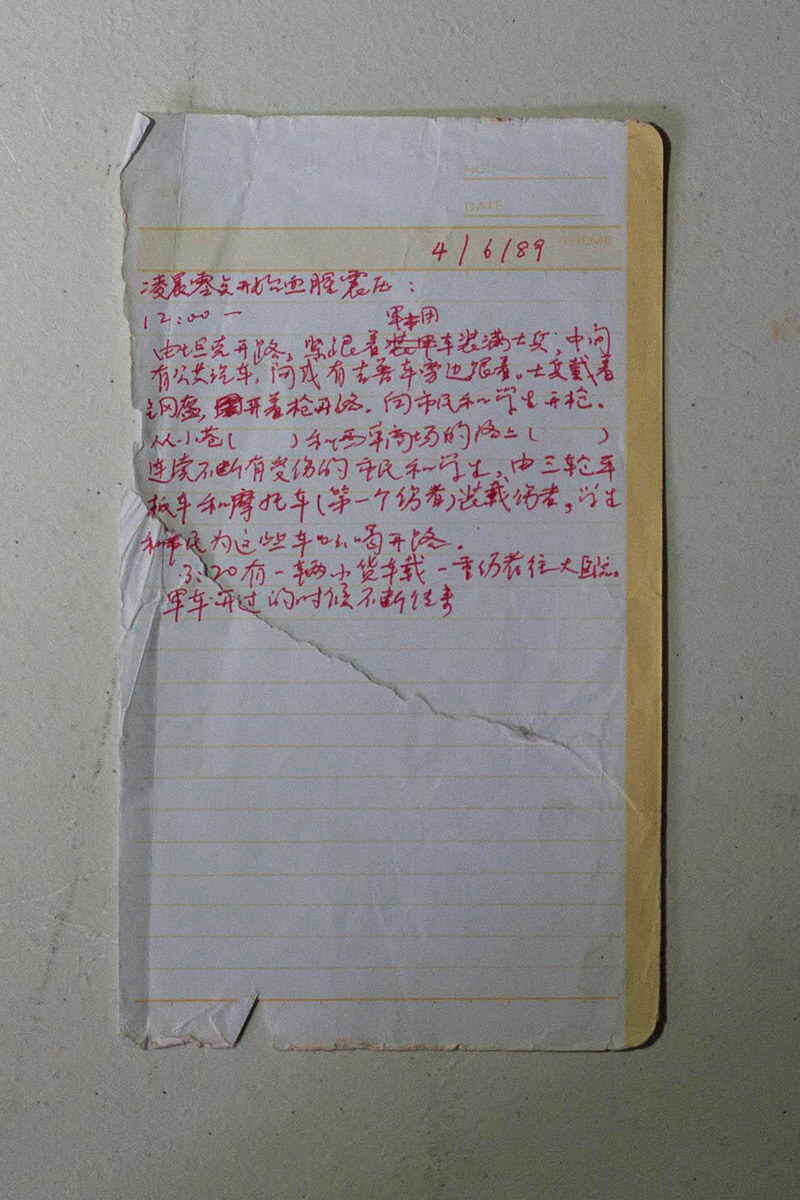 NO.
DATE
THEME
4/6/89
凌晨零点开始血腥震压：
12:00 —
军用
由坦克开路，紧跟着车装满士兵，中间
有公共汽车，间或有吉普车旁边跟着。士兵戴着
钢盔，开着枪开路。向市民和学生开枪。
从小巷（ ）和西单商场的路上（ ）
连续不断有受伤的市民和学生，由三轮平
板车和摩托车（第一个伤者）装载伤者，学生
和市民为这些车吆喝开路。
3:20有一辆小货车载一重伤者往大医院。
军车开过的时候不断往